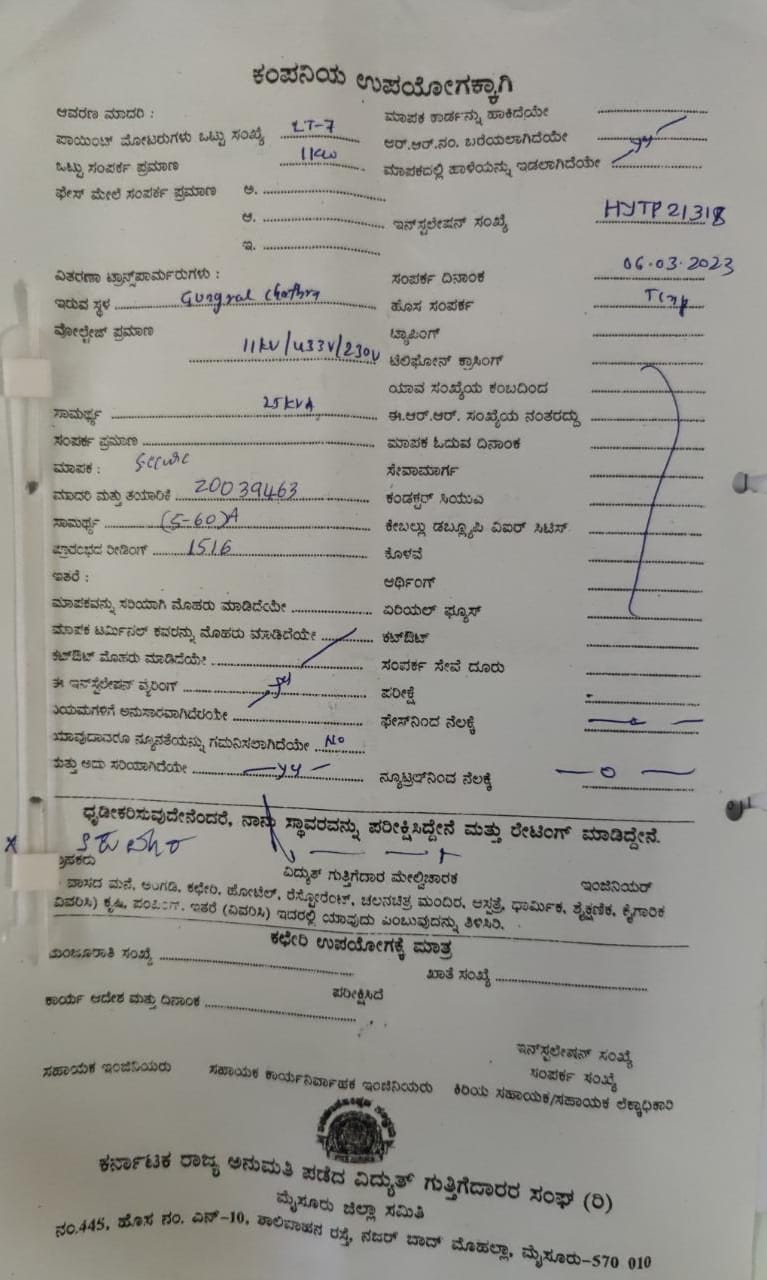 ಕಂಪನಿಯ ಉಪಯೋಗಕ್ಕಾಗಿ
ಆವರಣ ಮಾದರಿ :
ಪಾಯಿಂಟ್ ಮೋಟರುಗಳು ಒಟ್ಟು ಸಂಖ್ಯೆ LT-7
ಒಟ್ಟು ಸಂಪರ್ಕ ಪ್ರಮಾಣ 1KW
ಫೇಸ್ ಮೇಲೆ ಸಂಪರ್ಕ ಪ್ರಮಾಣ ಅ.
ಆ.
ಇ.
ಮಾಪಕ ಕಾರ್ಡನ್ನು ಹಾಕಿದೆಯೇ
ಆರ್.ಆರ್.ನಂ. ಬರೆಯಲಾಗಿದೆಯೇ
ಮಾಪಕದಲ್ಲಿ ಹಾಳೆಯನ್ನು ಇಡಲಾಗಿದೆಯೇ
ಇನ್‌ಸ್ಟಲೇಷನ್ ಸಂಖ್ಯೆ HYTP21318
ವಿತರಣಾ ಟ್ರಾನ್ಸ್‌ಪಾರ್ಮರುಗಳು :
ಇರುವ ಸ್ಥಳ
ವೋಲ್ಟೇಜ್ ಪ್ರಮಾಣ
11KV/433V/230V
ಸಾಮರ್ಥ್ಯ 25KVA
ಸಂಪರ್ಕ ಪ್ರಮಾಣ
ಮಾಪಕ : Secure
ಮಾದರಿ ಮತ್ತು ತಯಾರಿಕೆ 20039463
ಸಾಮರ್ಥ್ಯ (5-60)A
ಪ್ರಾರಂಭದ ರೀಡಿಂಗ್ 1516
ಇತರೆ :
ಮಾಪಕವನ್ನು ಸರಿಯಾಗಿ ಮೊಹರು ಮಾಡಿದೆಯೇ
ಮಾಪಕ ಟರ್ಮಿನಲ್ ಕವರನ್ನು ಮೊಹರು ಮಾಡಿದೆಯೇ
ಕಟ್‌ಔಟ್ ಮೊಹರು ಮಾಡಿದೆಯೇ
ಈ ಇನ್‌ಸ್ಟಲೇಷನ್ ವೈರಿಂಗ್
ನಿಯಮಗಳಿಗೆ ಅನುಸಾರವಾಗಿದೆಯೇ
ಯಾವುದಾದರೂ ನ್ಯೂನತೆಯನ್ನು ಗಮನಿಸಲಾಗಿದೆಯೇ No
ಮತ್ತು ಅದು ಸರಿಯಾಗಿದೆಯೇ
ಸಂಪರ್ಕ ದಿನಾಂಕ 06.03.2023
ಹೊಸ ಸಂಪರ್ಕ
ಟ್ಯಾಪಿಂಗ್
ಟೆಲಿಫೋನ್ ಕ್ರಾಸಿಂಗ್
ಯಾವ ಸಂಖ್ಯೆಯ ಕಂಬದಿಂದ
ಈ.ಆರ್.ಆರ್. ಸಂಖ್ಯೆಯ ನಂತರದ್ದು
ಮಾಪಕ ಓದುವ ದಿನಾಂಕ
ಸೇವಾಮಾರ್ಗ
ಕಂಡಕ್ಟರ್ ಸಿಯುಎ
ಕೇಬಲ್ಲು ಡಬ್ಲ್ಯೂಪಿ ವಿಐರ್ ಸಿಟಿಸ್
ಕೊಳವೆ
ಆರ್ಥಿಂಗ್
ಏರಿಯಲ್ ಫ್ಯೂಸ್
ಕಟ್‌ಔಟ್
ಸಂಪರ್ಕ ಸೇವೆ ದೂರು
ಪರೀಕ್ಷೆ
ಫೇಸ್‌ನಿಂದ ನೆಲಕ್ಕೆ
ನ್ಯೂಟ್ರಲ್‌ನಿಂದ ನೆಲಕ್ಕೆ
ಧೃಡೀಕರಿಸುವುದೇನೆಂದರೆ, ನಾನು ಸ್ಥಾವರವನ್ನು ಪರೀಕ್ಷಿಸಿದ್ದೇನೆ ಮತ್ತು ರೇಟಿಂಗ್ ಮಾಡಿದ್ದೇನೆ.
ವಿದ್ಯುತ್ ಗುತ್ತಿಗೆದಾರ ಮೇಲ್ವಿಚಾರಕ ಇಂಜಿನಿಯರ್
ವಾಸದ ಮನೆ, ಅಂಗಡಿ, ಕಛೇರಿ, ಹೋಟೆಲ್, ರೆಸ್ಟೋರೆಂಟ್, ಚಲನಚಿತ್ರ ಮಂದಿರ, ಆಸ್ಪತ್ರೆ, ಧಾರ್ಮಿಕ, ಶೈಕ್ಷಣಿಕ, ಕೈಗಾರಿಕ
ವಿವರಿಸಿ) ಕೃಷಿ, ಪಂಪಿಂಗ್, ಇತರೆ (ವಿವರಿಸಿ) ಇದರಲ್ಲಿ ಯಾವುದು ಎಂಬುವುದನ್ನು ತಿಳಿಸಿರಿ.
ಕಛೇರಿ ಉಪಯೋಗಕ್ಕೆ ಮಾತ್ರ
ಮಂಜೂರಾತಿ ಸಂಖ್ಯೆ ಖಾತೆ ಸಂಖ್ಯೆ
ಪರೀಕ್ಷಿಸಿದೆ
ಕಾರ್ಯ ಆದೇಶ ಮತ್ತು ದಿನಾಂಕ
ಇನ್‌ಸ್ಟಲೇಷನ್ ಸಂಖ್ಯೆ
ಸಂಪರ್ಕ ಸಂಖ್ಯೆ
ಸಹಾಯಕ ಇಂಜಿನಿಯರು ಸಹಾಯಕ ಕಾರ್ಯನಿರ್ವಾಹಕ ಇಂಜಿನಿಯರು ಕಿರಿಯ ಸಹಾಯಕ/ಸಹಾಯಕ ಲೆಕ್ಕಾಧಿಕಾರಿ
ಕರ್ನಾಟಕ ರಾಜ್ಯ ಅನುಮತಿ ಪಡೆದ ವಿದ್ಯುತ್ ಗುತ್ತಿಗೆದಾರರ ಸಂಘ (ರಿ)
ಮೈಸೂರು ಜಿಲ್ಲಾ ಸಮಿತಿ
ನಂ.445, ಹೊಸ ನಂ. ಎನ್-10, ಶಾಲಿವಾಹನ ರಸ್ತೆ, ನಜರ್ ಬಾದ್ ಮೊಹಲ್ಲಾ, ಮೈಸೂರು-570 010